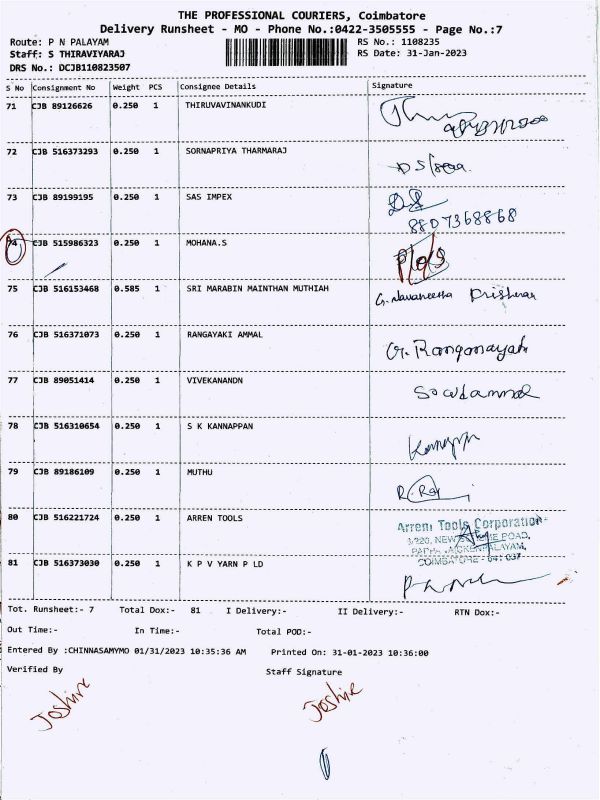 THE PROFESSIONAL COURIERS, Coimbatore
Delivery Runsheet - MO - Phone No.:0422-3505555 - Page No.:7
Route: P N PALAYAM RS No.: 1108235
Staff: S THIRAVIYARAJ RS Date: 31-Jan-2023
DRS No.: DCJB110823507
S No Consignment No Weight PCS Consignee Details Signature
71 CJB 89126626 0.250 1 THIRUVAVINANKUDI
72 CJB 516373293 0.250 1 SORNAPRIYA THARMARAJ
73 CJB 89199195 0.250 1 SAS IMPEX
8807368868
74 CJB 515986323 0.250 1 MOHANA.S
75 CJB 516153468 0.585 1 SRI MARABIN MAINTHAN MUTHIAH
76 CJB 516371073 0.250 1 RANGAYAKI AMMAL G. Ranganayaki
77 CJB 89051414 0.250 1 VIVEKANANDN
78 CJB 516310654 0.250 1 S K KANNAPPAN
79 CJB 89186109 0.250 1 MUTHU
80 CJB 516221724 0.250 1 ARREN TOOLS Arren Tools Corporation
COIMBATORE - 641 037
81 CJB 516373030 0.250 1 K P V YARN P LD
Tot. Runsheet:- 7 Total Dox:- 81 I Delivery:- II Delivery:- RTN Dox:-
Out Time:- In Time:- Total POD:-
Entered By :CHINNASAMYMO 01/31/2023 10:35:36 AM Printed On: 31-01-2023 10:36:00
Verified By Staff Signature
Joshine Joshine